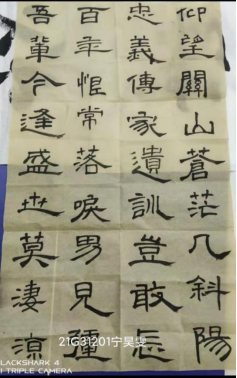 仰望關山蒼茫几斜陽
忠義傳家遺訓豈敢忘
百年惟常落唳男見彊
吾輩今逢盛世莫凄涼
21G31201宁昊雯
LACKSHARK 4
I TRIPLE CAMERA